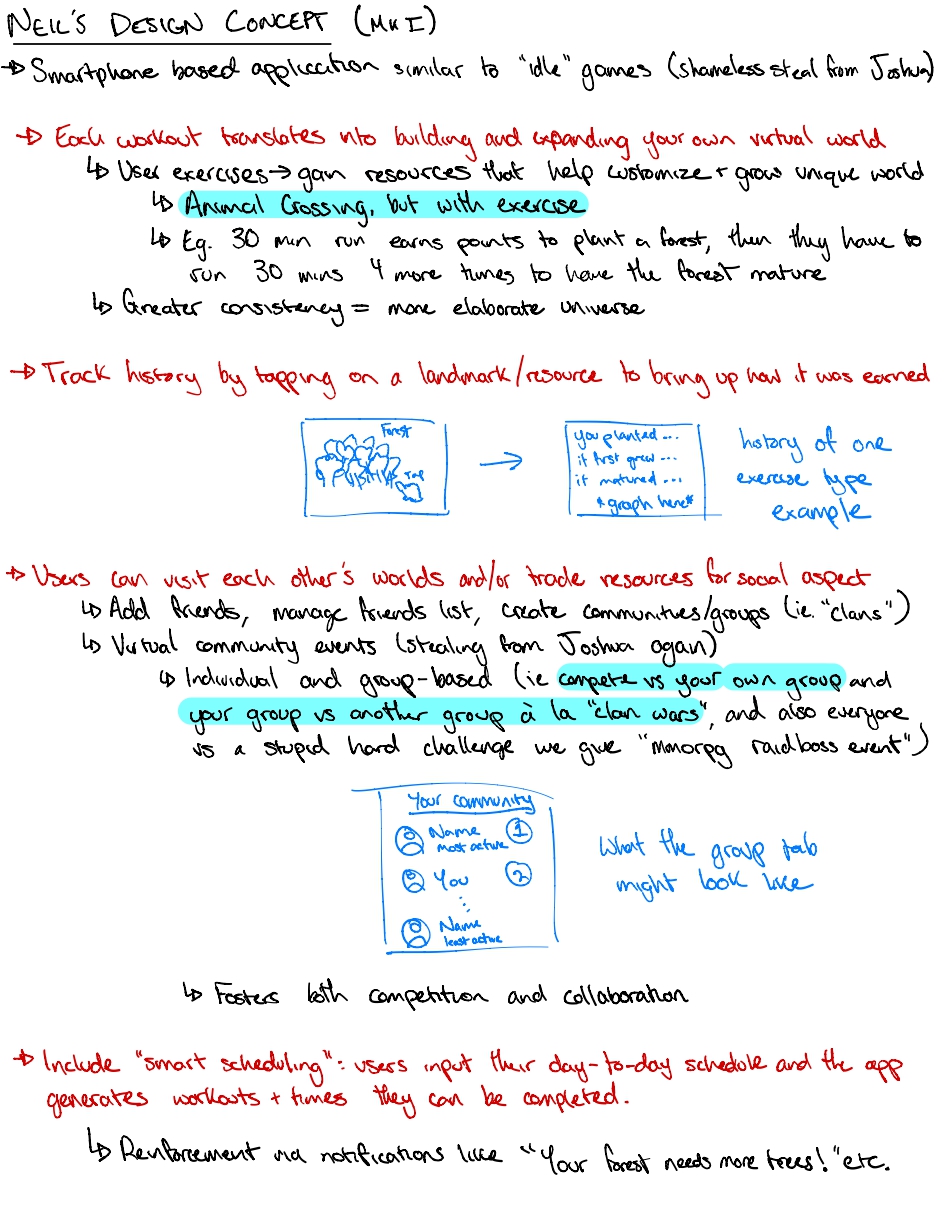 NEIL'S DESIGN CONCEPT (MK I)
→ Smartphone based application similar to "idle" games (shameless steal from Joshua)
→ Each workout translates into building and expanding your own virtual world
↳ User exercises → gain resources that help customize + grow unique world
↳ Animal Crossing, but with exercise
↳ Eg. 30 min run earns points to plant a forest, then they have to
run 30 mins 4 more times to have the forest mature
↳ Greater consistency = more elaborate universe
→ Track history by tapping on a landmark/resource to bring up how it was earned
Forest
Tap
→
you planted ...
it first grew ...
it matured ...
*graph here*
history of one
exercise type
example
→ Users can visit each other's worlds and/or trade resources for social aspect
↳ Add friends, manage friends list, create communities/groups (ie. "clans")
↳ Virtual community events (stealing from Joshua again)
↳ Individual and group-based (ie compete vs your own group and
your group vs another group à la "clan wars", and also everyone
vs a stupid hard challenge we give "mmorpg raidboss event")
Your community
Name 1
most active
You 2
⋮
Name
least active
What the group tab
might look like
↳ Fosters both competition and collaboration
→ Include "smart scheduling": users input their day-to-day schedule and the app
generates workouts + times they can be completed.
↳ Reinforcement via notifications like "Your forest needs more trees!" etc.